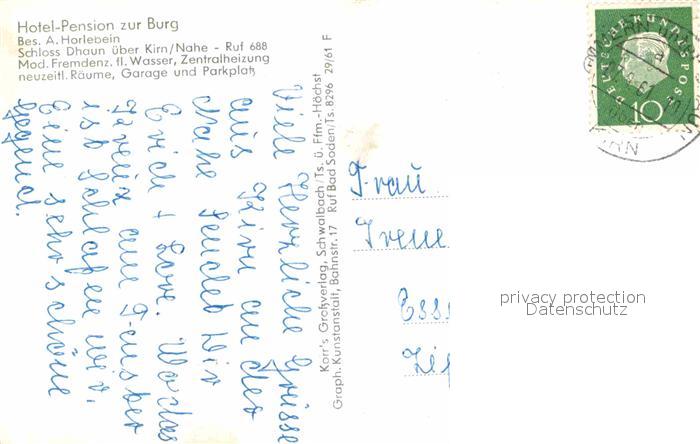 Hotel-Pension zur Burg
Bes. A. Horlebein
Schloss Dhaun über Kirn/Nahe - Ruf 688
Mod. Fremdenz. fl. Wasser, Zentralheizung
neuzeitl. Räume, Garage und Parkplatz
Viele Herzliche Grüsse
aus Kirn an der
Nahe sendet Dir
Erich +
ist Schlafen wir.
Eine sehr schöne
Gegend.
Korr's Großverlag, Schwalbach/Ts. ü. Ffm.-Höchst
Graph. Kunstanstalt, Bahnstr. 17 Ruf Bad Soden/Ts. 8296 29/61 F
DEUTSCHE BUNDESPOST
10
Frau
Irene
Ess
privacy protection
Datenschutz